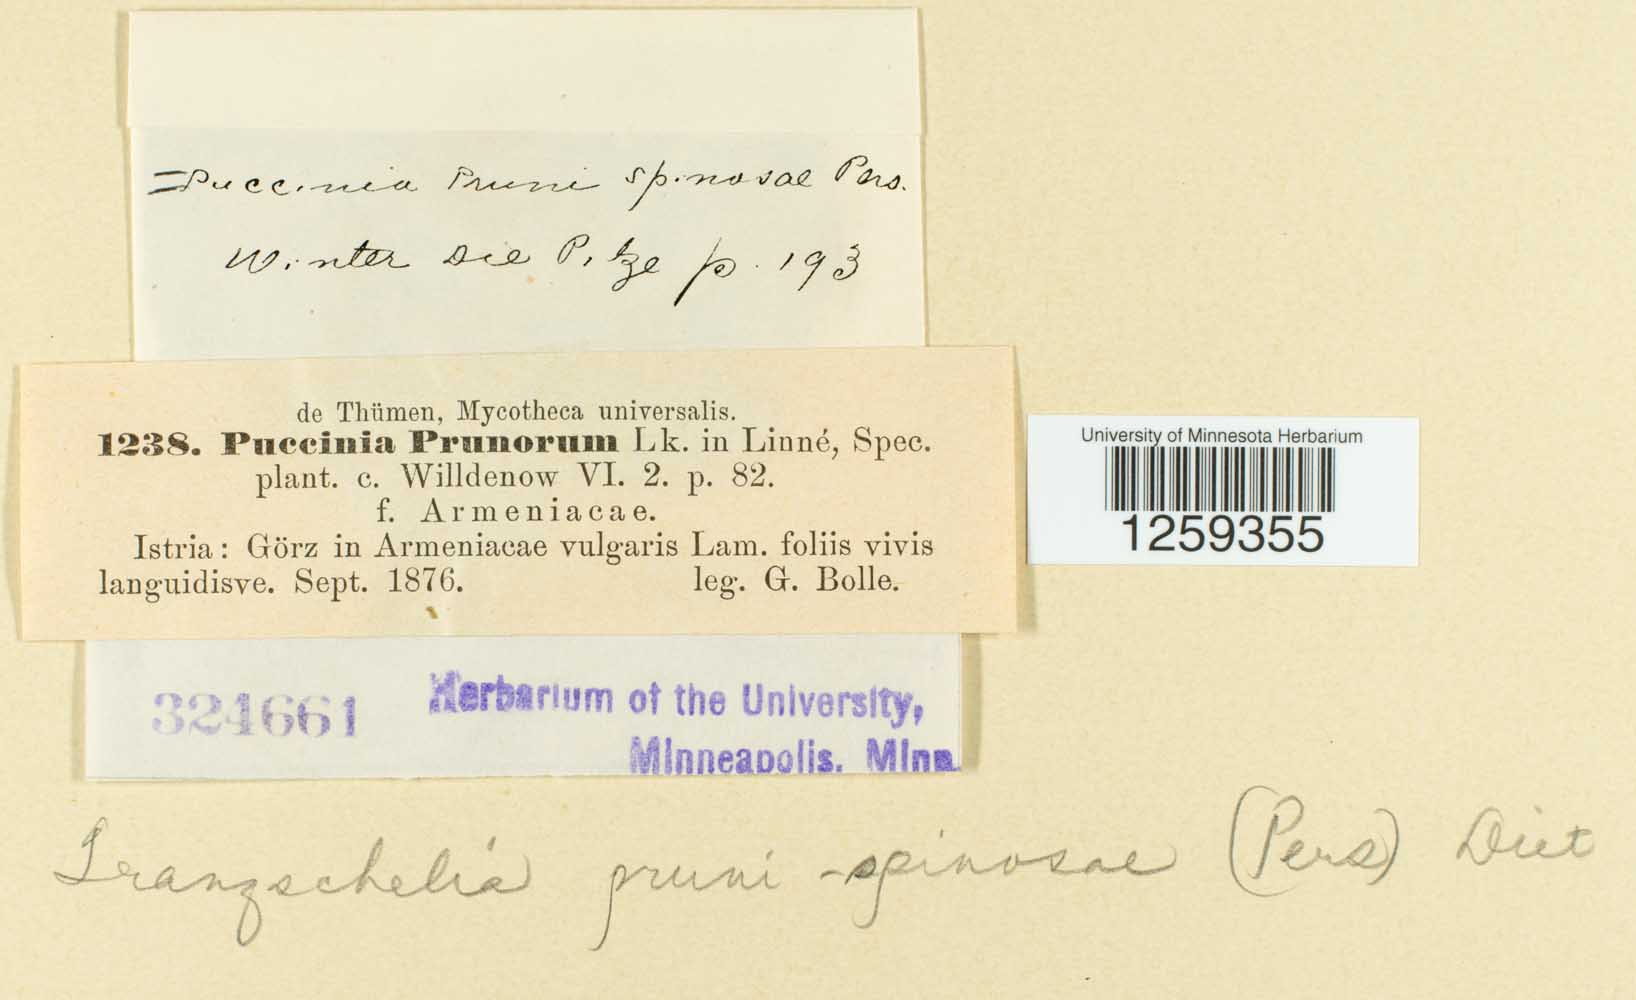 =Puccinia Pruni spinosae Pers.
Winter Die Pilze p. 193
de Thümen, Mycotheca universalis.
1238. Puccinia Prunorum Lk. in Linné, Spec.
plant. c. Willdenow VI. 2. p. 82.
f. Armeniacae.
Istria: Görz in Armeniacae vulgaris Lam. foliis vivis
languidisve. Sept. 1876. leg. G. Bolle.
University of Minnesota Herbarium
1259355
324661
Herbarium of the University,
Minneapolis, Minn.
Tranzschelia pruni-spinosae (Pers) Diet